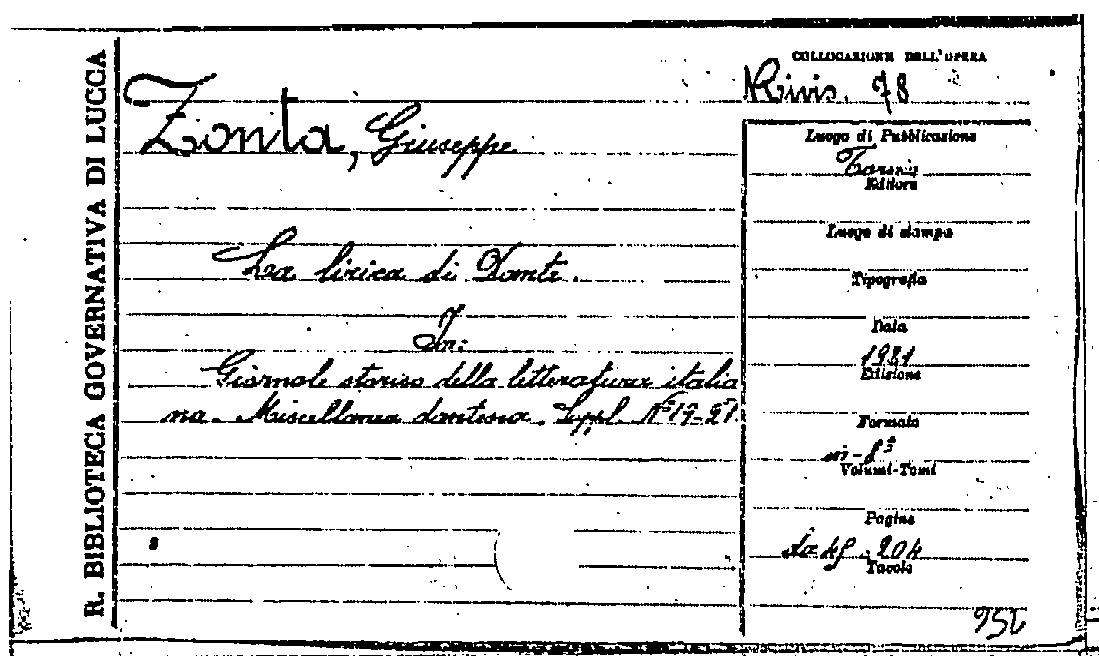 R. BIBLIOTECA GOVERNATIVA DI LUCCA
Zonta, Giuseppe
La lirica di Dante.
In:
Giornale storico della letteratura italia
na. Miscellanea dantesca. Suppl. Nº 19-21.
8
COLLOCAZIONE DELL'OPERA
Rivis. 78
Luogo di Pubblicazione
Torino
Editore
Luogo di stampa
Tipografia
Data
1921
Edizione
Formato
in-8º
Volumi-Tomi
Pagine
204
Tavole
956